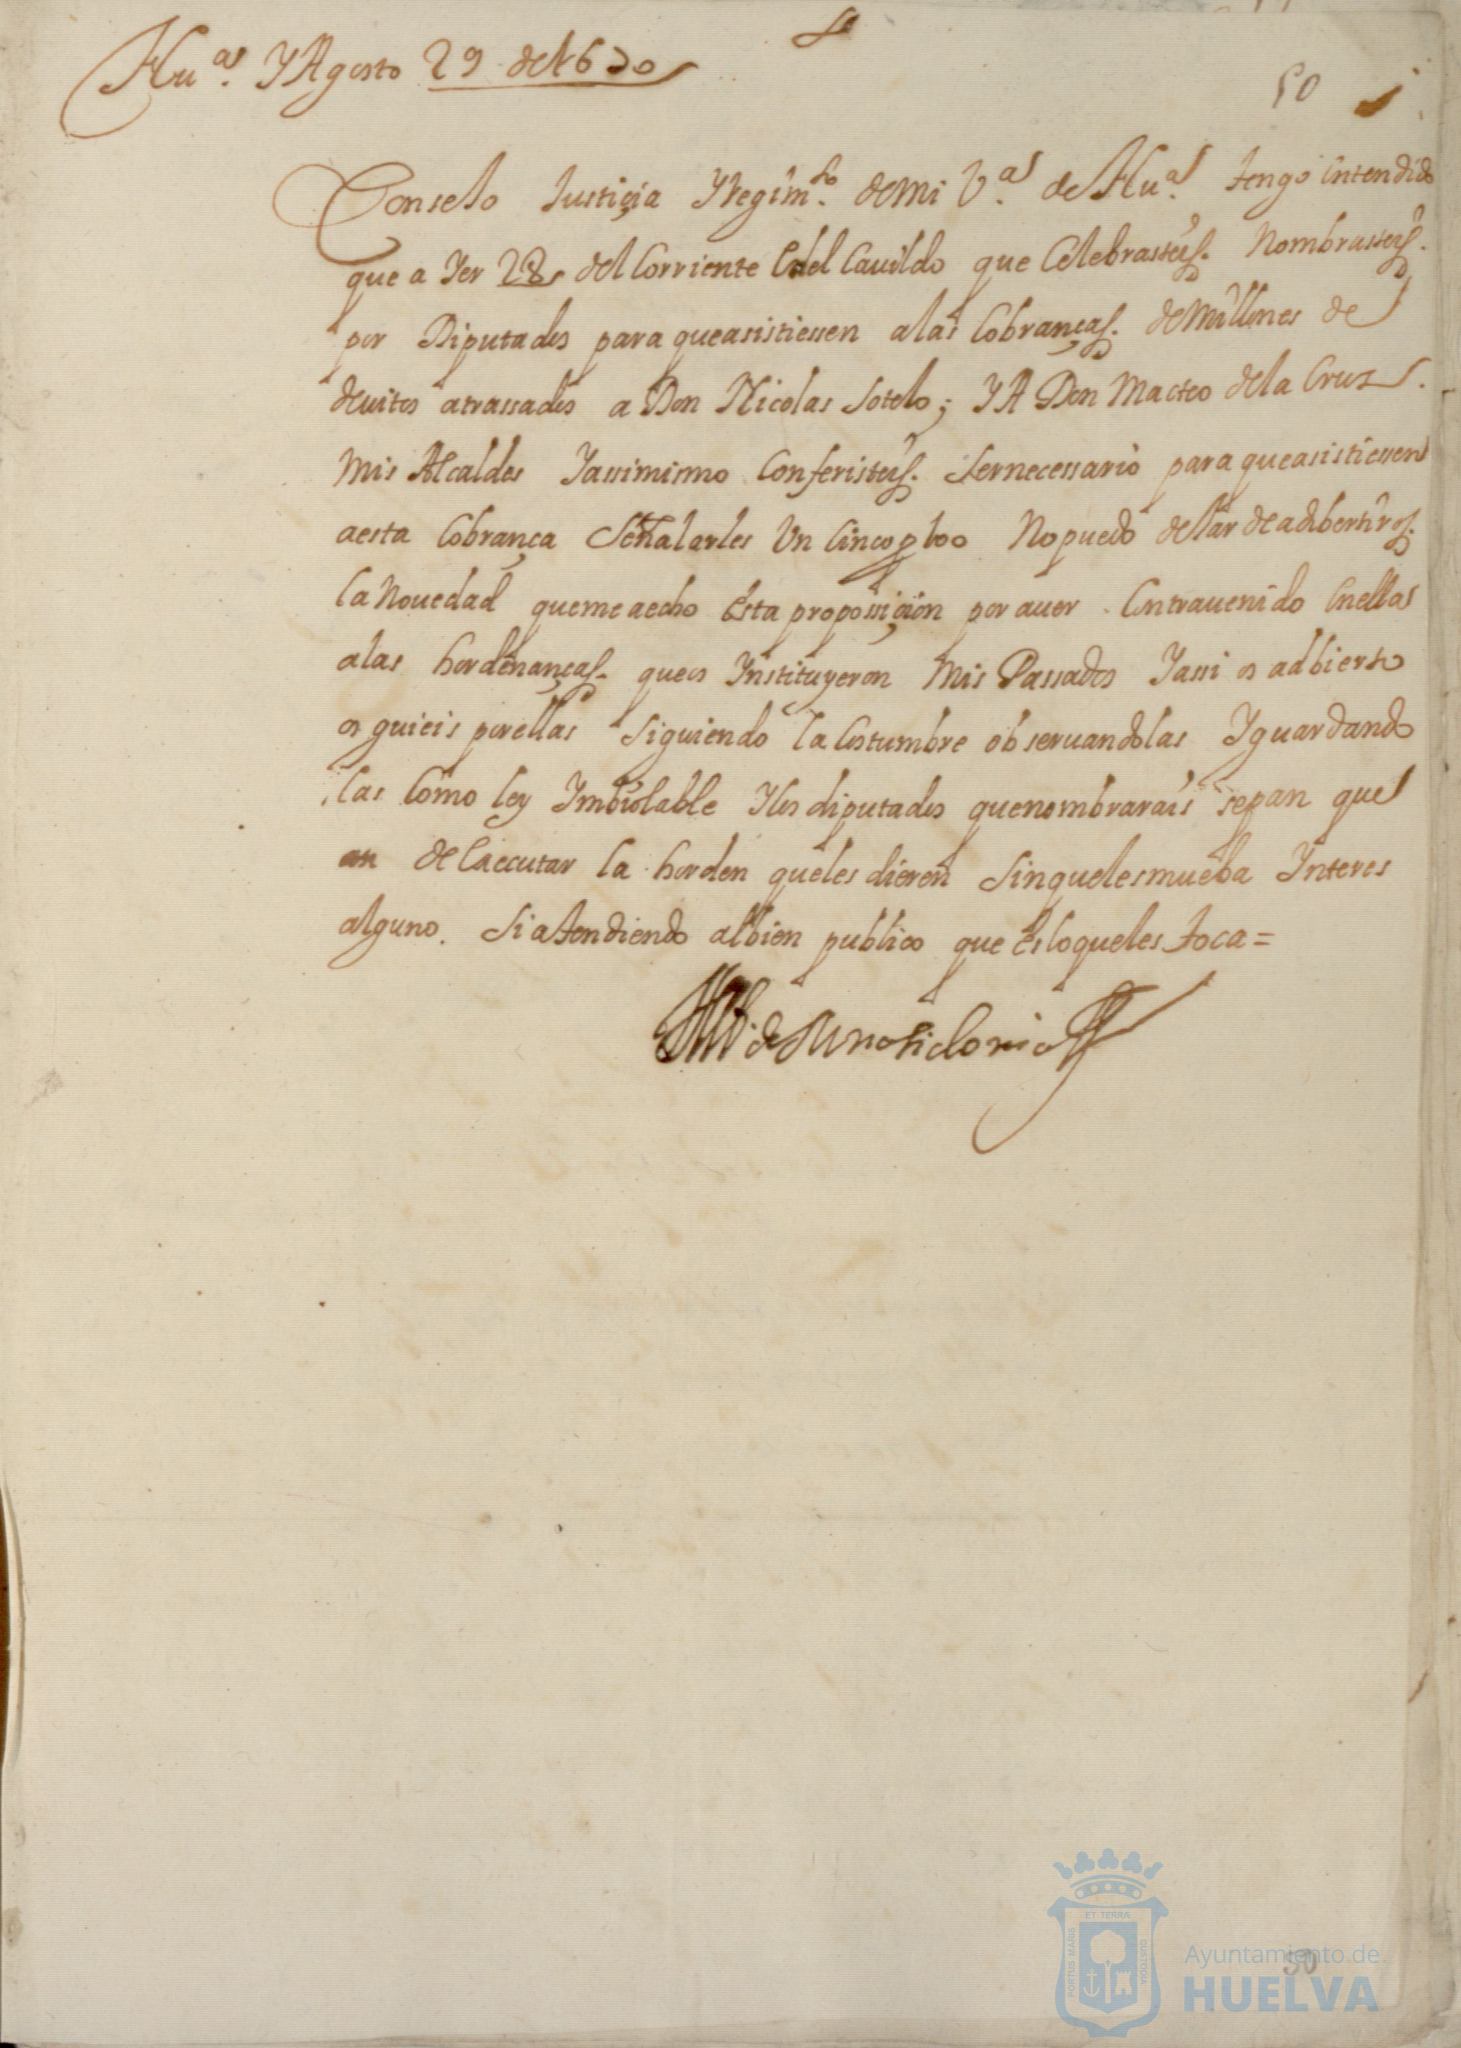 Huª. Y Agosto 29 de 1670
50
ConseJo Justiçia Y Regimto. de mi Vª. de Huª. tengo entendido
que a Yer 28 del Corriente en el Cauildo que Celebrasteis. Nombrasteis.
por Diputados para que asistiessen a las Cobranças. de Millones de
deuitos atrassados a Don Nicolas Sotelo; Y A Don Matteo de la Cruz.
Mis Alcaldes Y assimismo Conferisteis. Ser necessario para que asistiessen
a esta Cobrança Señalarles Un Cinco p 100 No puedo deJar de adbertiros.
la Nouedad que me a echo Esta proposiçion por auer Contrauenido En ellas
a las hordenanças. que os Ynstituyeron Mis Passados Y assi os adbierto
os guieis por ellas Siguiendo la Costumbre obseruandolas Y guardando
las Como ley Ymbiolable Y los diputados que nombrarais sepan que
an de Executar la horden que les dieren Sin que les mueba Ynteres
alguno. Si atendiendo al bien publico que Es lo que les toca =
de Medina Sidonia
PORTUS MARIS
ET TERRA
CUSTODIA
50
Ayuntamiento de
HUELVA